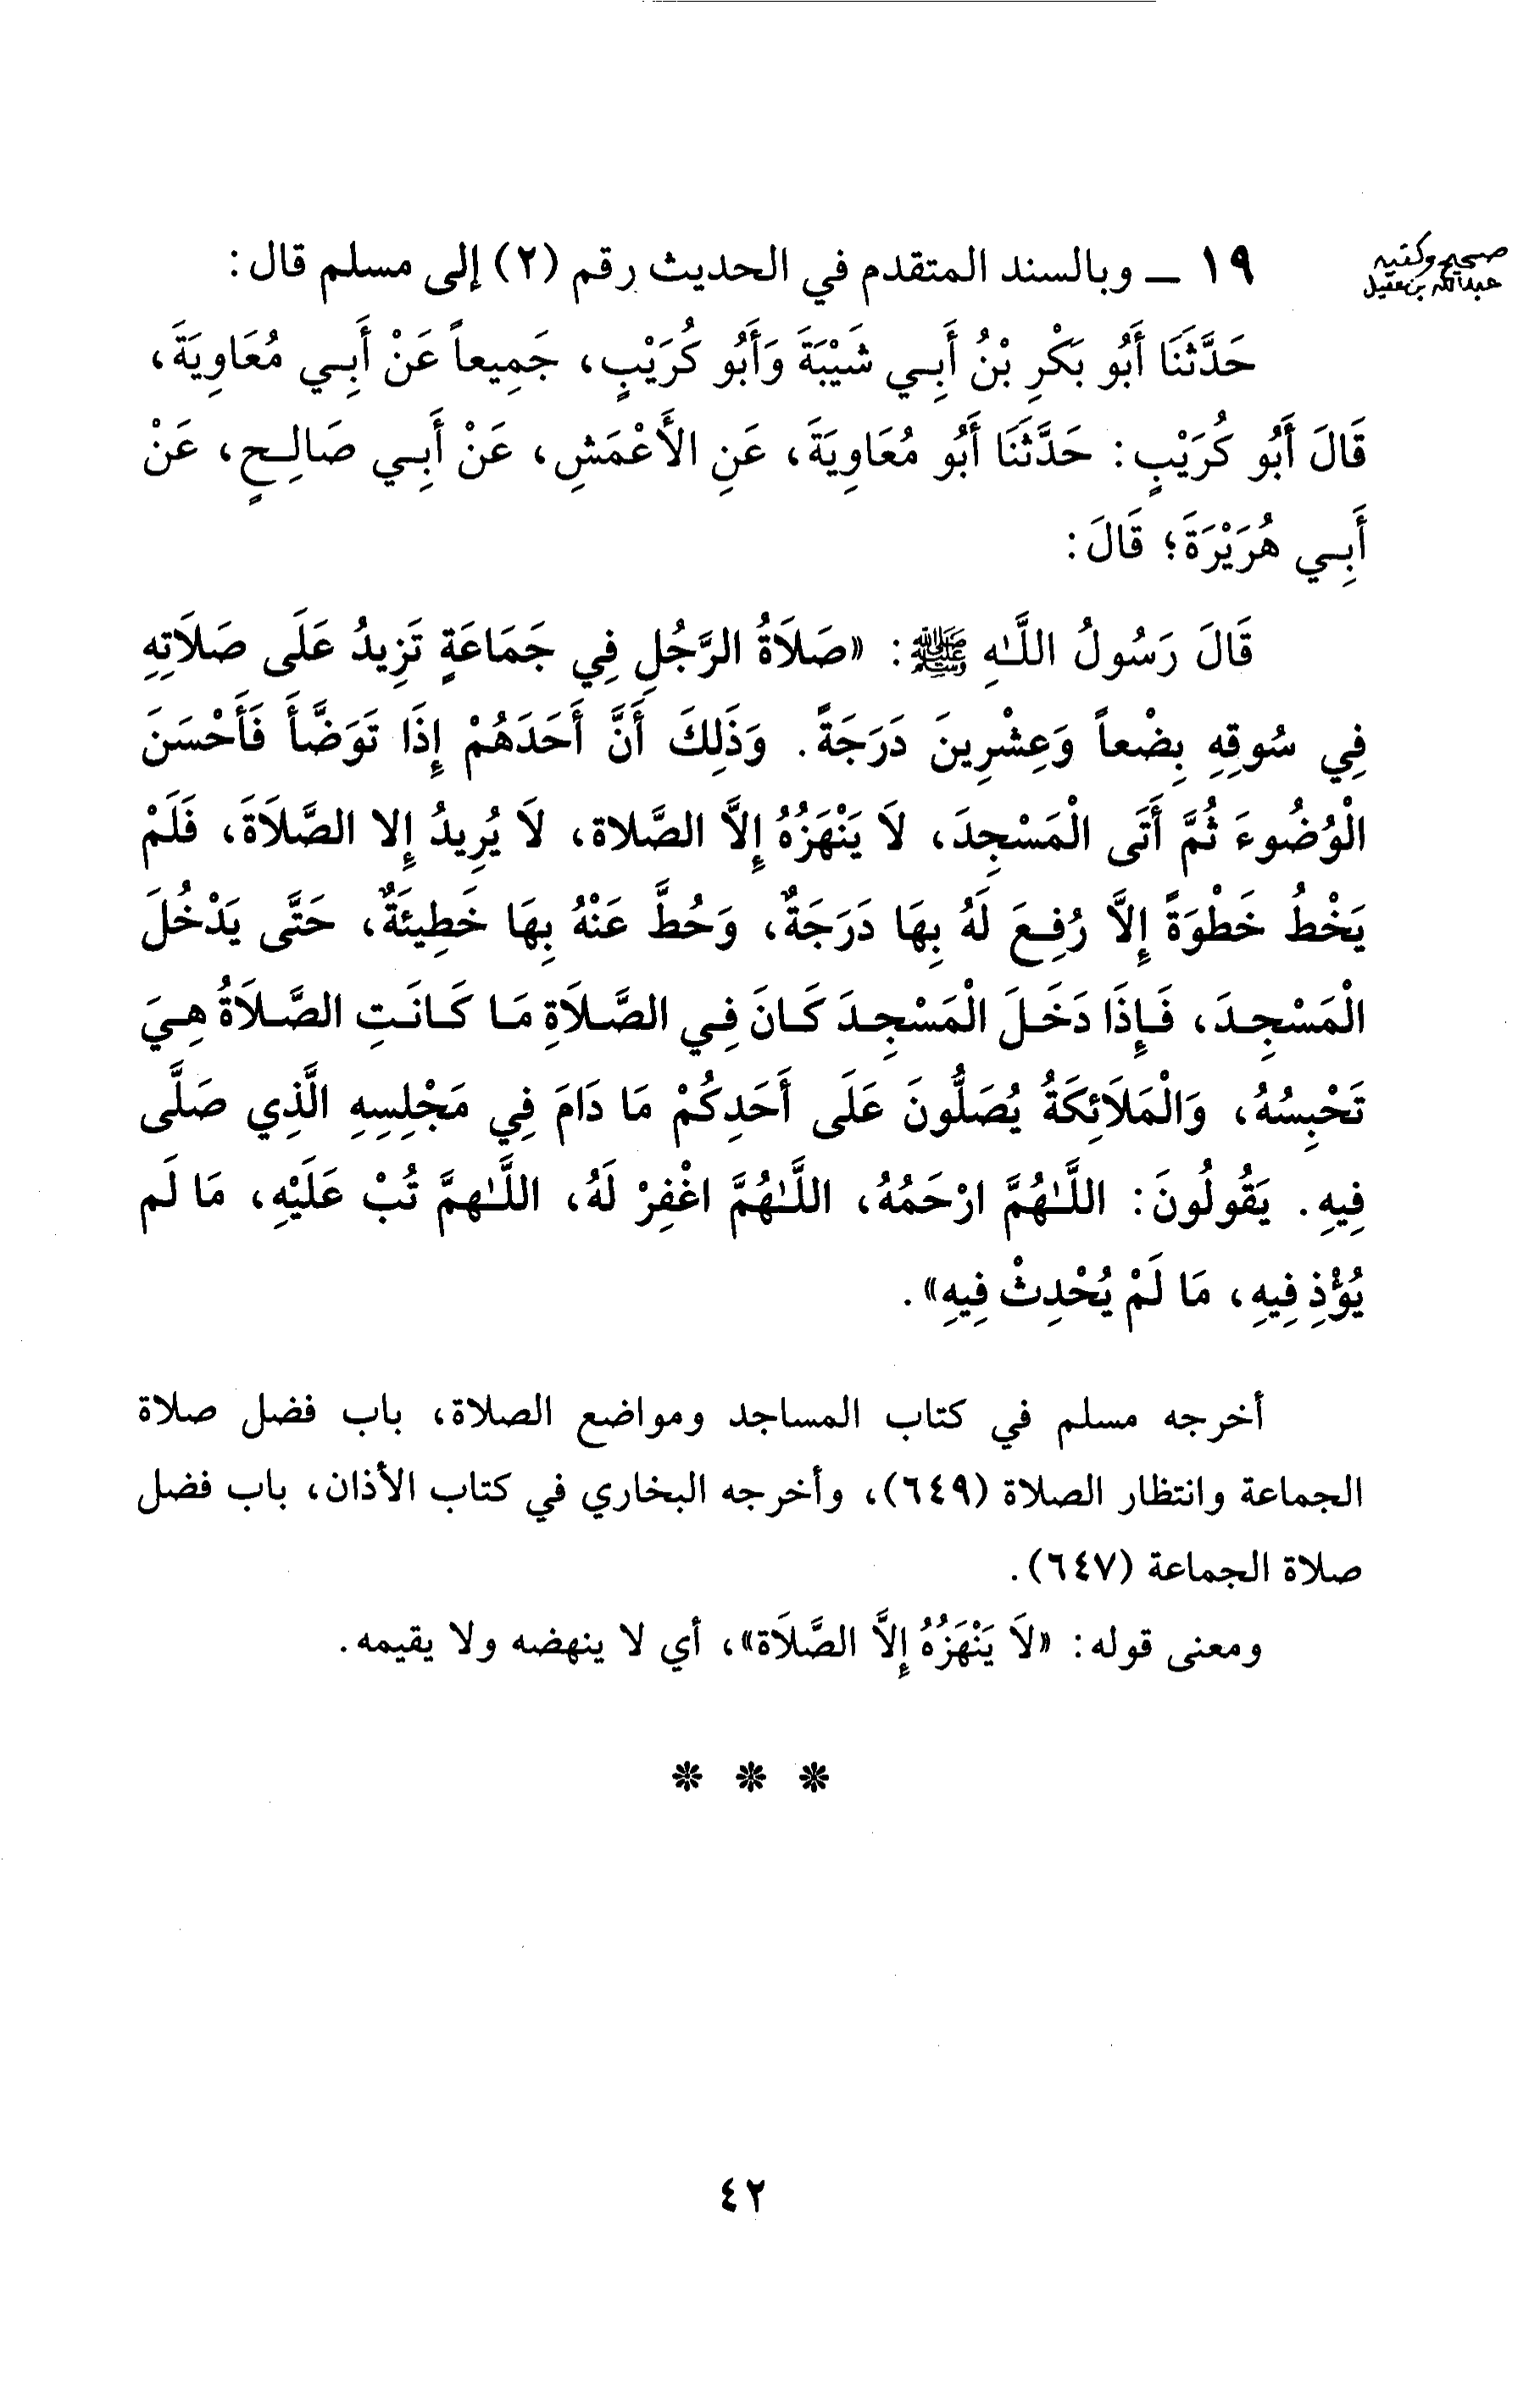 صحيح وكتبه
عبدالله بن عقيل
١٩ ـ وبالسند المتقدم في الحديث رقم (٢) إلى مسلم قال:
حَدَّثَنَا أَبُو بَكْرِ بْنُ أَبِي شَيْبَةَ وَأَبُو كُرَيْبٍ، جَمِيعاً عَنْ أَبِي مُعَاوِيَةَ،
قَالَ أَبُو كُرَيْبٍ: حَدَّثَنَا أَبُو مُعَاوِيَةَ، عَنِ الأَعْمَشِ، عَنْ أَبِي صَالِحٍ، عَنْ
أَبِي هُرَيْرَةَ؛ قَالَ:
قَالَ رَسُولُ اللَّهِ ﷺ: «صَلَاةُ الرَّجُلِ فِي جَمَاعَةٍ تَزِيدُ عَلَى صَلَاتِهِ
فِي سُوقِهِ بِضْعاً وَعِشْرِينَ دَرَجَةً. وَذَلِكَ أَنَّ أَحَدَهُمْ إِذَا تَوَضَّأَ فَأَحْسَنَ
الْوُضُوءَ ثُمَّ أَتَى الْمَسْجِدَ، لَا يَنْهَزُهُ إِلَّا الصَّلاة، لَا يُرِيدُ إِلا الصَّلَاةَ، فَلَمْ
يَخْطُ خَطْوَةً إِلَّا رُفِعَ لَهُ بِهَا دَرَجَةٌ، وَحُطَّ عَنْهُ بِهَا خَطِيئَةٌ، حَتَّى يَدْخُلَ
الْمَسْجِدَ، فَإِذَا دَخَلَ الْمَسْجِدَ كَانَ فِي الصَّلَاةِ مَا كَانَتِ الصَّلَاةُ هِيَ
تَحْبِسُهُ، وَالْمَلَائِكَةُ يُصَلُّونَ عَلَى أَحَدِكُمْ مَا دَامَ فِي مَجْلِسِهِ الَّذِي صَلَّى
فِيهِ. يَقُولُونَ: اللَّهُمَّ ارْحَمْهُ، اللَّهُمَّ اغْفِرْ لَهُ، اللَّهمَّ تُبْ عَلَيْهِ، مَا لَم
يُؤْذِ فِيهِ، مَا لَمْ يُحْدِثْ فِيهِ».
أخرجه مسلم في كتاب المساجد ومواضع الصلاة، باب فضل صلاة
الجماعة وانتظار الصلاة (٦٤٩)، وأخرجه البخاري في كتاب الأذان، باب فضل
صلاة الجماعة (٦٤٧).
ومعنى قوله: «لَا يَنْهَزُهُ إِلَّا الصَّلَاة»، أي لا ينهضه ولا يقيمه.
* * *
٤٢